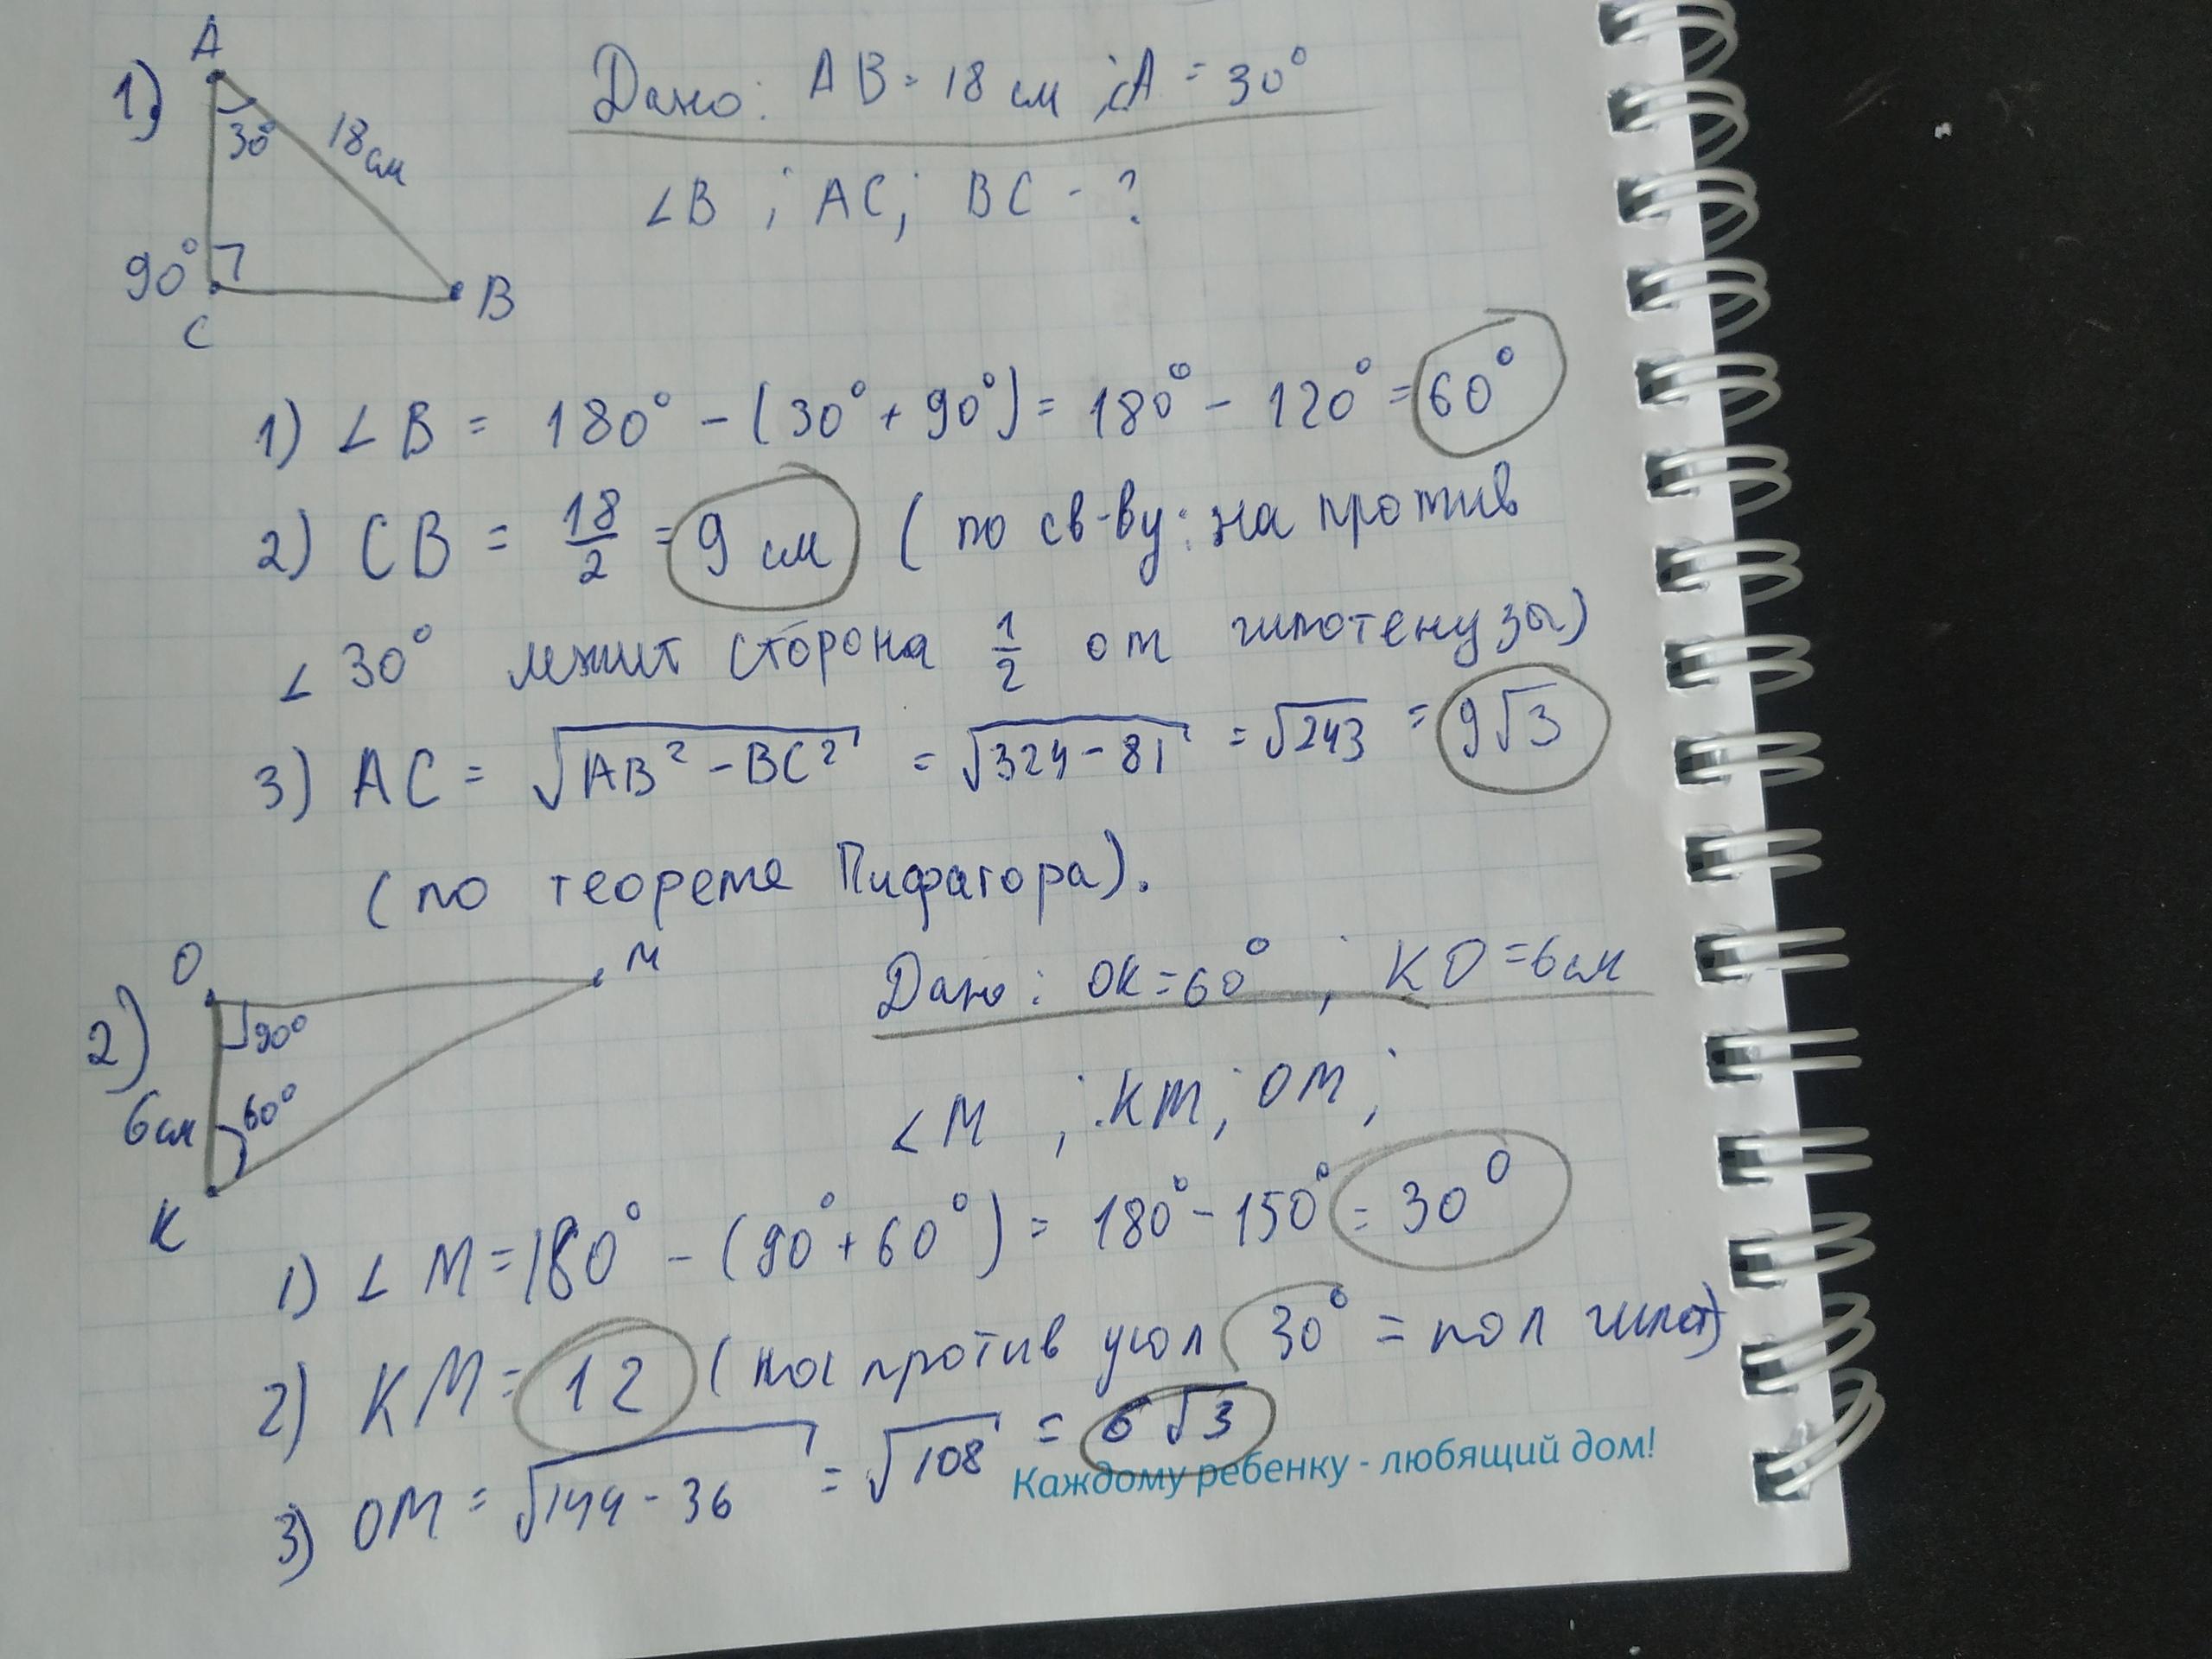 1)
A
30°
18см
90°
C
B
Дано: AB = 18 см ; ∠A = 30°
∠B ; AC; BC - ?
1) ∠B = 180° - (30° + 90°) = 180° - 120° = 60°
2) CB = 18/2 = 9 см ( по св-ву: на против
∠ 30° лежит сторона 1/2 от гипотенузы)
3) AC = √AB² - BC² = √324 - 81 = √243 = 9√3
(по теореме Пифагора).
2)
O
M
90°
60°
6см
K
Дано: OK = 60° ; KO = 6 см
∠M ; KM; OM;
1) ∠M = 180° - (90° + 60°) = 180° - 150° = 30°
2) KM = 12 (на против угол 30° = пол гипот)
3) OM = √144 - 36 = √108 = 6√3
Каждому ребенку - любящий дом!